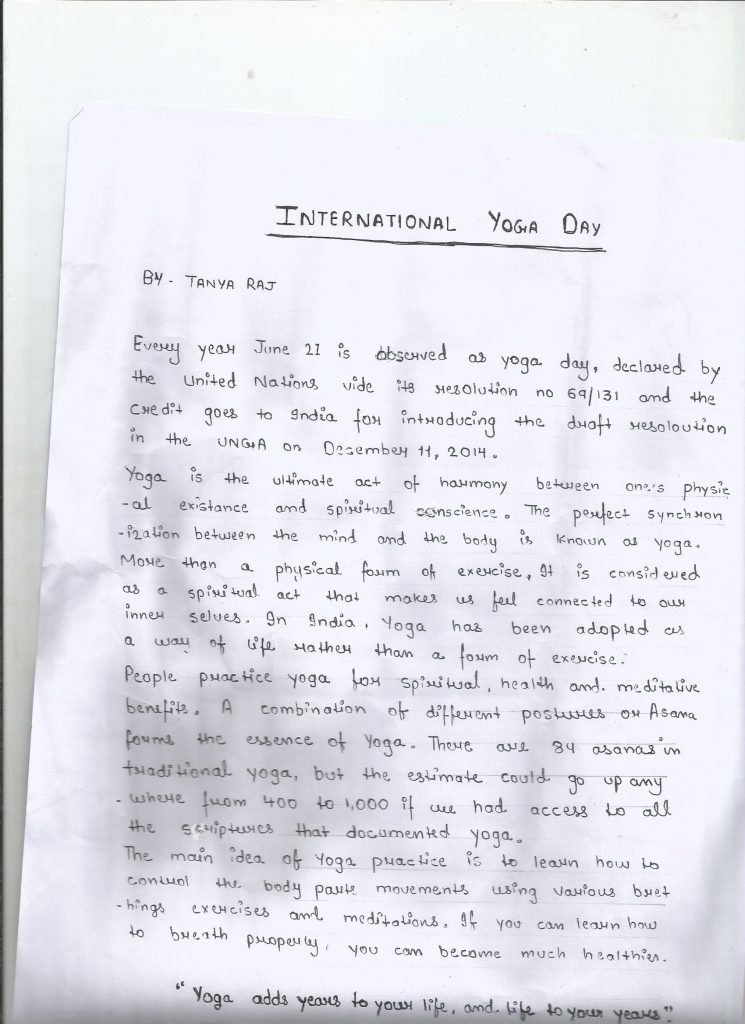 INTERNATIONAL YOGA DAY
BY - TANYA RAJ
Every year June 21 is observed as yoga day, declared by
the United Nations vide its resolution no 69/131 and the
credit goes to India for introducing the draft resoloution
in the UNGA on Desember 11, 2014.
Yoga is the ultimate act of harmony between one's physic
-al existance and spiritual conscience. The perfect synchron
-ization between the mind and the body is known as yoga.
More than a physical form of exercise, It is considered
as a spiritual act that makes us feel connected to our
inner selves. In India, Yoga has been adopted as
a way of life rather than a form of exercise.
People practice yoga for spiritual, health and meditative
benefits. A combination of different postures or Asana
forms the essence of Yoga. There are 84 asanas in
traditional yoga, but the estimate could go up any
-where from 400 to 1,000 if we had access to all
the scriptures that documented yoga.
The main idea of Yoga practice is to learn how to
control the body parte movements using various bret
-hings exercises and meditations. If you can learn how
to breath properly, you can become much healthier.
"Yoga adds years to your life, and life to your years"